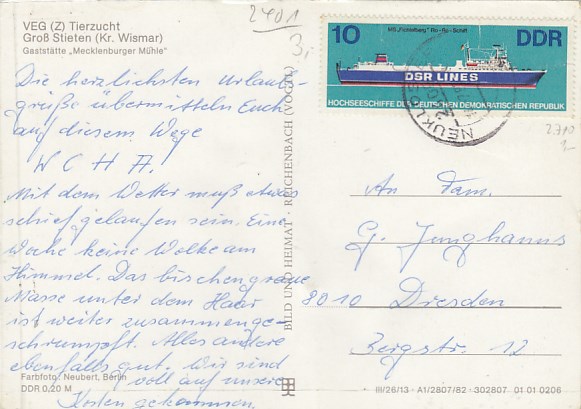 VEG (Z) Tierzucht
Groß Stieten (Kr. Wismar)
Gaststätte „Mecklenburger Mühle"
2401
Die herzlichsten Urlaubs-
grüße übermitteln Euch
auf diesem Wege
W C H A.
Mit dem Wetter muß etwas
schief gelaufen sein. Eine
Woche keine Wolke am
Himmel. Das bischen graue
Masse unter dem Haar
ist weiter zusammenge-
schrumpft. Alles andere
ebenfalls gut. Wir sind
voll auf unsere
Kosten gekommen.
Farbfoto: Neubert, Berlin
DDR 0,20 M
BILD UND HEIMAT · REICHENBACH (VOGTL)
10
MS „Fichtelberg" Ro-Ro-Schiff
DDR
DSR LINES
HOCHSEESCHIFFE DER DEUTSCHEN DEMOKRATISCHEN REPUBLIK
2710
An Fam.
G. Junghanns
8010 Dresden
Bergstr. 12
III/26/13 · A1/2807/82 · 302807 01 01 0206